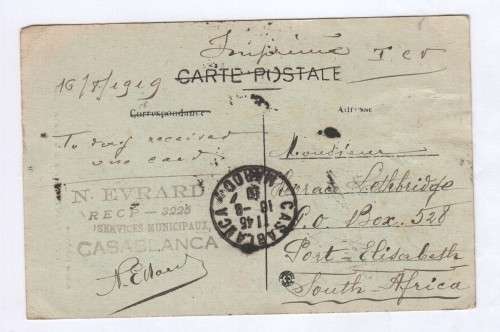 Imprimé T C V
16/8/1919
CARTE POSTALE
Correspondance
Adresse
To day received
one card
N. EVRARD
RECP — 3225
SERVICES MUNICIPAUX
CASABLANCA
N. Evrard
CASABLANCA
MAROC
11 45
16 - 8
19
Monsieur
Lethbridge
P.O. Box. 528
Port-Elisabeth
South Africa